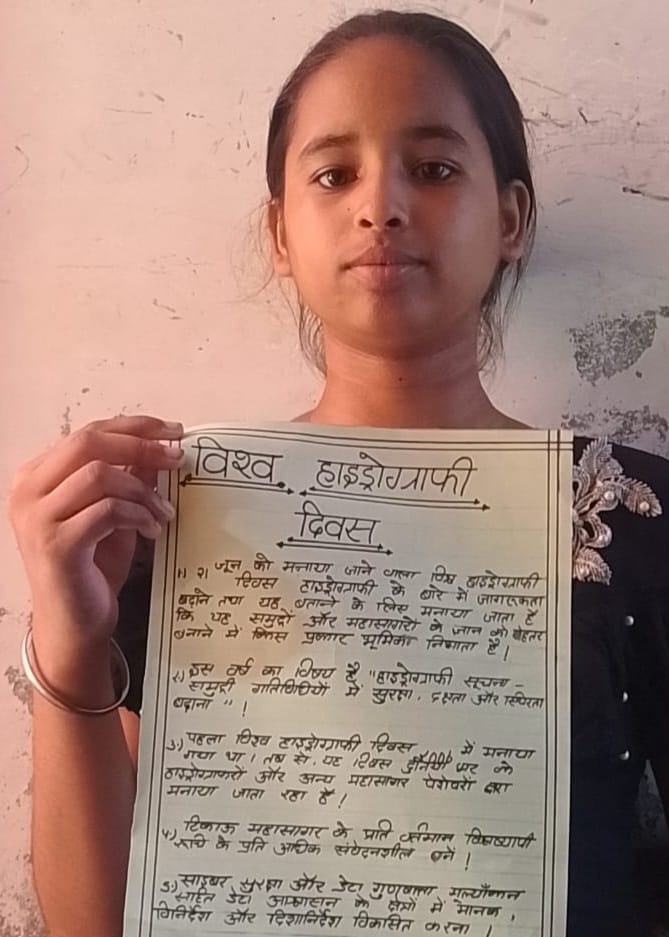 विश्व हाइड्रोग्राफी
दिवस
1) 21 जून को मनाया जाने वाला विश्व हाइड्रोग्राफी
दिवस हाइड्रोग्राफी के बारे में जागरूकता
बढ़ाने तथा यह बताने के लिए मनाया जाता है
कि यह समुद्रों और महासागरों के ज्ञान को बेहतर
बनाने में किस प्रकार भूमिका निभाता है!
2) इस वर्ष का विषय है "हाइड्रोग्राफी सूचना -
सामुद्री गतिविधियों में सुरक्षा, दक्षता और स्थिरता
बढ़ाना"!
3) पहला विश्व हाइड्रोग्राफी दिवस में मनाया
गया था! तब से, यह दिवस भर के
हाइड्रोग्राफरों और अन्य महासागर पेशेवरों द्वारा
मनाया जाता रहा है!
4) टिकाऊ महासागर के प्रति वर्तमान विश्वव्यापी
रूचि के प्रति अधिक संवेदनशील बनें!
5) साइबर सुरक्षा और डेटा गुणवत्ता मूल्याँकन
सहित डेटा आश्वासन के क्षेत्रों में मानक,
विनिर्देश और दिशानिर्देश विकसित करना!